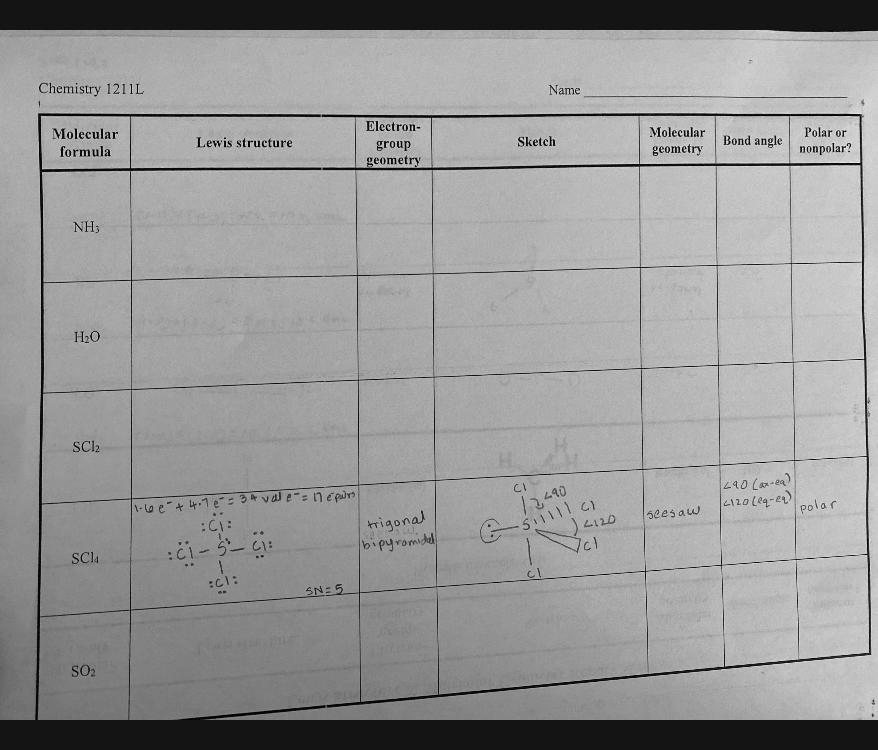 Chemistry 1211L
Name
Molecular formula
Lewis structure
Electron-group geometry
Sketch
Molecular geometry
Bond angle
Polar or nonpolar?
NH₃
H₂O
SCl₂
SCl₄
1·6 e⁻ + 4·7 e⁻ = 34 val e⁻ = 17 e⁻ pairs
:Cl:
:Cl – S – Cl:
:Cl:
SN = 5
trigonal
bipyramidal
Cl
<90
Cl
: — S
<120
Cl
Cl
seesaw
<90 (ax-eq)
<120 (eq-eq)
polar
SO₂